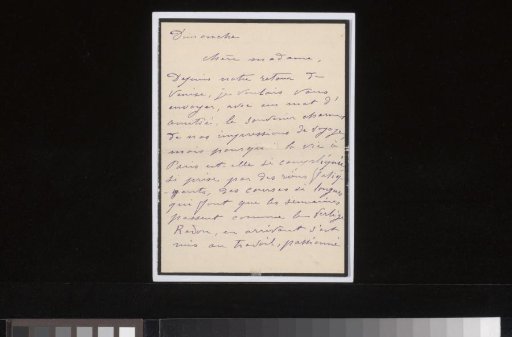 Dimanche
Chère madame,
Depuis notre retour de
Venise, je voulais vous
envoyer, avec un mot d'
amitié, le souvenir charmé
de nos impressions de voyage,
mais pourquoi la vie à
Paris est elle si compliquée
si prise, par des riens fatig
gants, des courses si longues
qui font que les semaines
passent comme le
Redon, en arrivant s'est
mis au travail, passionné